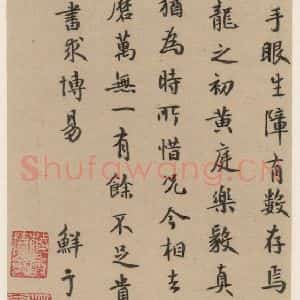 手眼生障有數存焉
龍之初黃庭樂毅真
猶為時所惜況今相去
磨萬無一有餘不足貴
書求博易
鮮于
Shufawang.CN